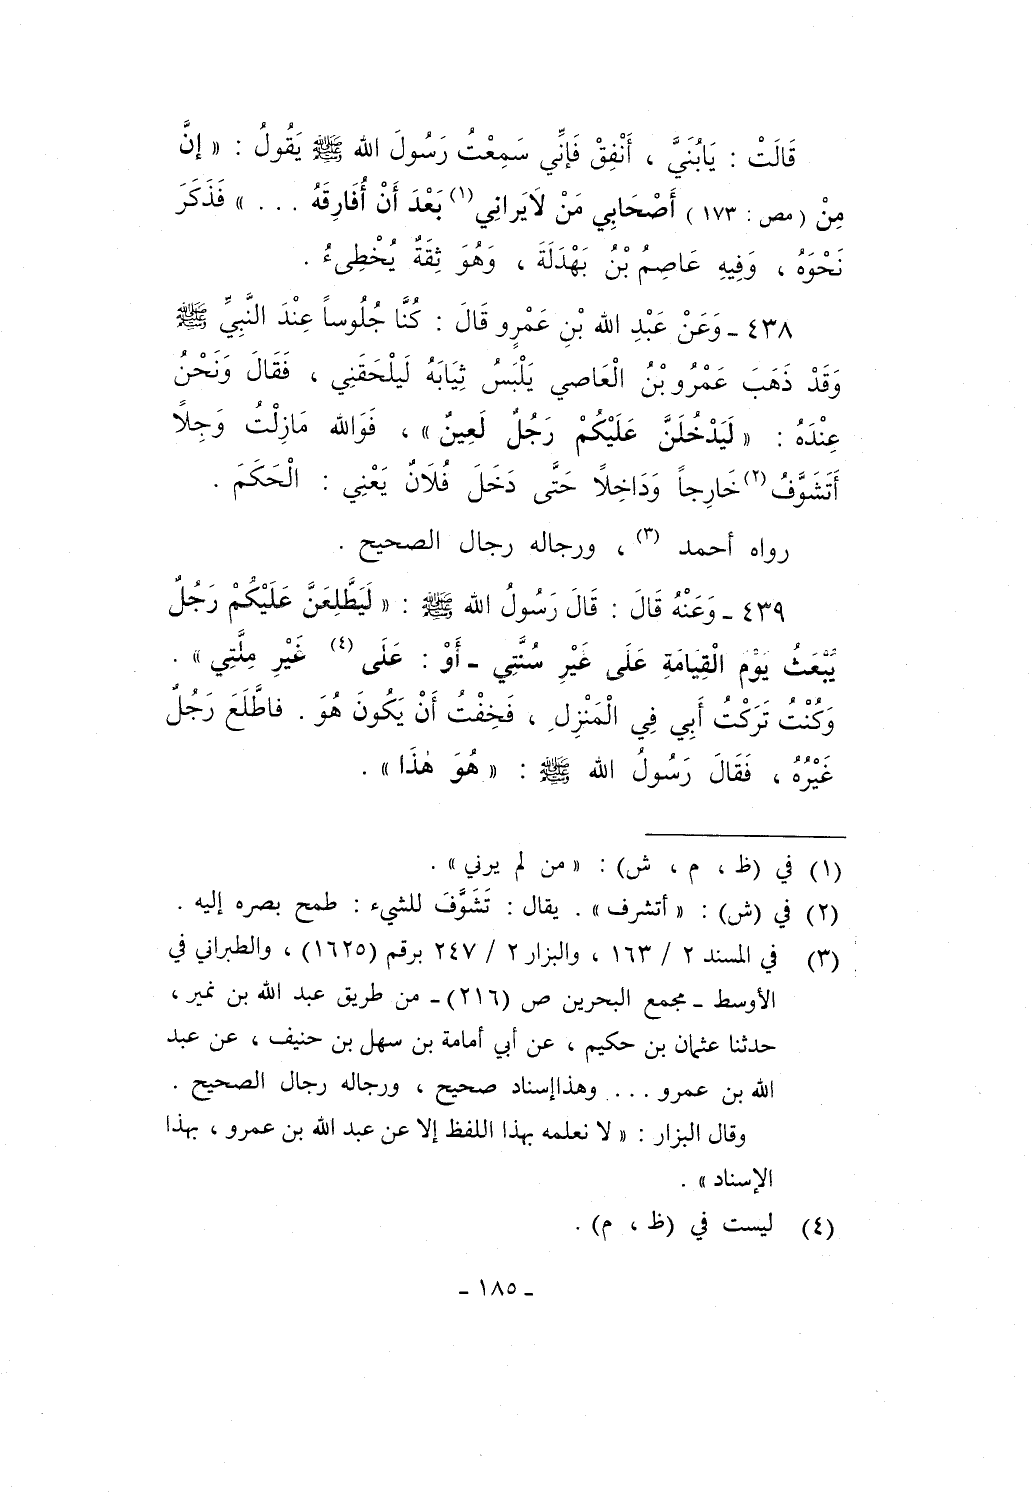 قَالَتْ : يَابُنَيَّ ، أَنْفِقْ فَإِنِّي سَمِعْتُ رَسُولَ الله ﷺ يَقُولُ : « إنَّ
مِنْ ( مص : ١٧٣ ) أَصْحَابِي مَنْ لَايَرانِي(١) بَعْدَ أَنْ أُفَارِقَهُ . . . » فَذَكَرَ
نَحْوَهُ ، وَفِيهِ عَاصِمُ بْنُ بَهْدَلَةَ ، وَهُوَ ثِقَةٌ يُخْطِىءُ .
٤٣٨ ـ وَعَنْ عَبْدِ الله بْنِ عَمْرٍو قَالَ : كُنَّا جُلُوساً عِنْدَ النَّبِيِّ ﷺ
وَقَدْ ذَهَبَ عَمْرُو بْنُ الْعَاصي يَلْبَسُ ثِيَابَهُ لَيلْحَقَنِي ، فَقَالَ وَنَحْنُ
عِنْدَهُ : « لَيَدْخُلَنَّ عَلَيْكُمْ رَجُلٌ لَعِينٌ » ، فَوَالله مَازِلْتُ وَجِلاً
أَتَشَوَّفُ(٢) خَارِجاً وَدَاخِلاً حَتَّى دَخَلَ فُلَانٌ يَعْنِي : الْحَكَمَ .
رواه أحمد (٣) ، ورجاله رجال الصحيح .
٤٣٩ ـ وَعَنْهُ قَالَ : قَالَ رَسُولُ الله ﷺ : « لَيَطَّلِعَنَّ عَلَيْكُمْ رَجُلٌ
يُبْعَثُ يَوْمَ الْقِيَامَةِ عَلَى غَيْرِ سُنَّتِي ـ أَوْ : عَلَى (٤) غَيْرِ مِلَّتِي » .
وَكُنْتُ تَرَكْتُ أَبِي فِي الْمَنْزِلِ ، فَخِفْتُ أَنْ يَكُونَ هُوَ . فاطَّلَعَ رَجُلٌ
غَيْرُهُ ، فَقَالَ رَسُولُ الله ﷺ : « هُوَ هٰذَا » .
(١) في (ظ ، م ، ش) : « من لم يرني » .
(٢) في (ش) : « أتشرف » . يقال : تَشَوَّفَ للشيء : طمح بصره إليه .
(٣) في المسند ٢ / ١٦٣ ، والبزار ٢ / ٢٤٧ برقم (١٦٢٥) ، والطبراني في
الأوسط ـ مجمع البحرين ص (٢١٦) ـ من طريق عبد الله بن نمير ،
حدثنا عثمان بن حكيم ، عن أبي أمامة بن سهل بن حنيف ، عن عبد
الله بن عمرو . . . وهذاإسناد صحيح ، ورجاله رجال الصحيح .
وقال البزار : « لا نعلمه بهذا اللفظ إلا عن عبد الله بن عمرو ، بهذا
الإسناد » .
(٤) ليست في (ظ ، م) .
ـ ١٨٥ ـ